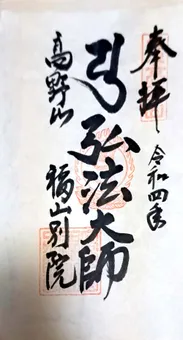 奉拝
令和四年
弘法大師
高野山
福山別院